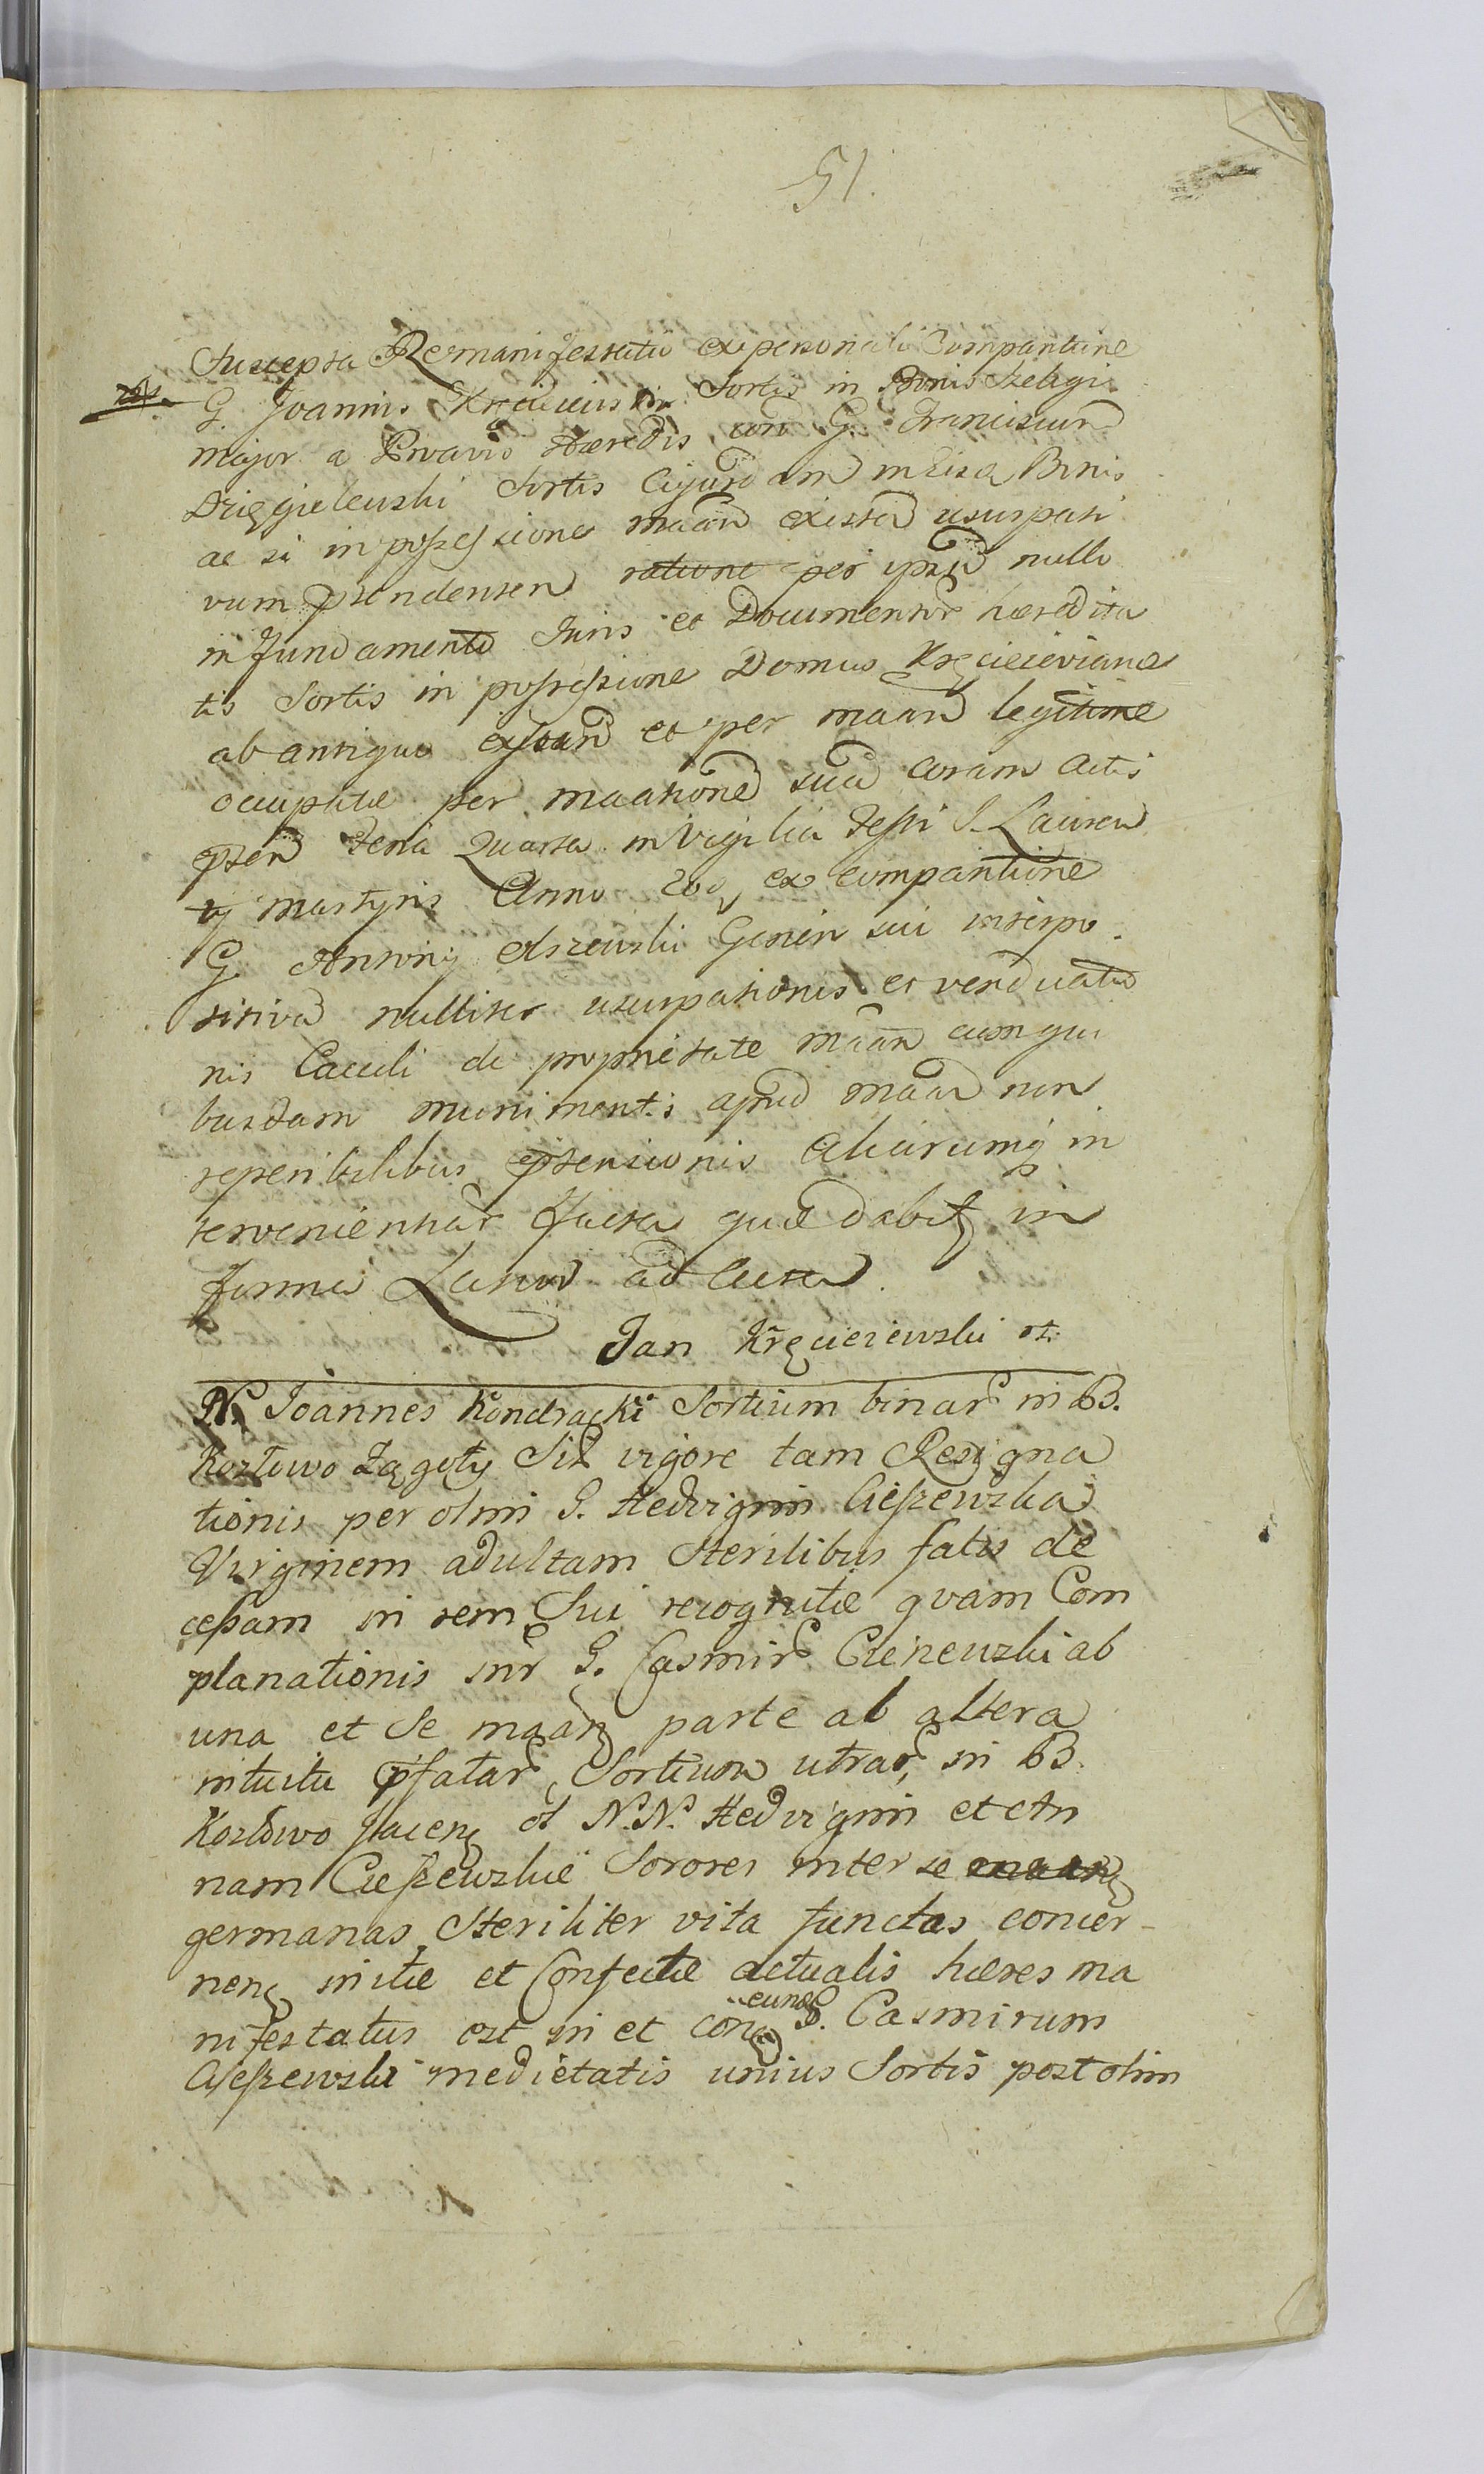 51.
Suscepta Remanifestatio ex personali Comparitione
G. Joannis Kręciewski Sortis in Bonis Szeligi
major a Proavis Hæredis, con G. Franciscum
Dzięgielewski Sortis Cujusdam in Eisd. Bonis
ac si in possessione maan existen usurpati
vum prtendenten ratione per ipsu nullo
in fundamento Juris et Documentor hæredita
tis Sortis in possessione Domus Kręcieieviana
ab antiquo existan et per maan legitime
occupatæ per maationē suā coram Actis
prsen Feria Quarta in Vigilia Festi S. Lauren
tij Martyris Anno eod ex comparitione
G. Antonij Generi sui interpo
sitivā nulliter usurpationis et venduatio
nis de proprietate maan cum qui
busdam munimentis apud maan non
reperibilibus prtensionis Aliarumq in
tervenientiar facta quæ dabit in
forma Latior ad Acta.
Jan Kręcieiewski
N. Joannes Kondracki Sortium binar in B.
Kozłowo Zągoty Sit vigore tam Resigna
tionis per olim G. Hedvigim Cieszewska
Virginem adultam Sterilibus fatis de
cessam in rem Sui recognitæ quam Com
planationis intr G. Casmir Cieszewski ab
una et Se maan parte ab altera
intuitu prfatar Sortium utrar, in B.
Kozłowo Jacen ol N.N. Hedvigim et An
nam Cieszewskie Sorores inter se
germanas Steriliter vita functas concer-
nen initæ et Confectæ actualis hæres ma
nifestatus est in et con eund G. Casmirum
Ciesszewski medietatis unius Sortis post olim